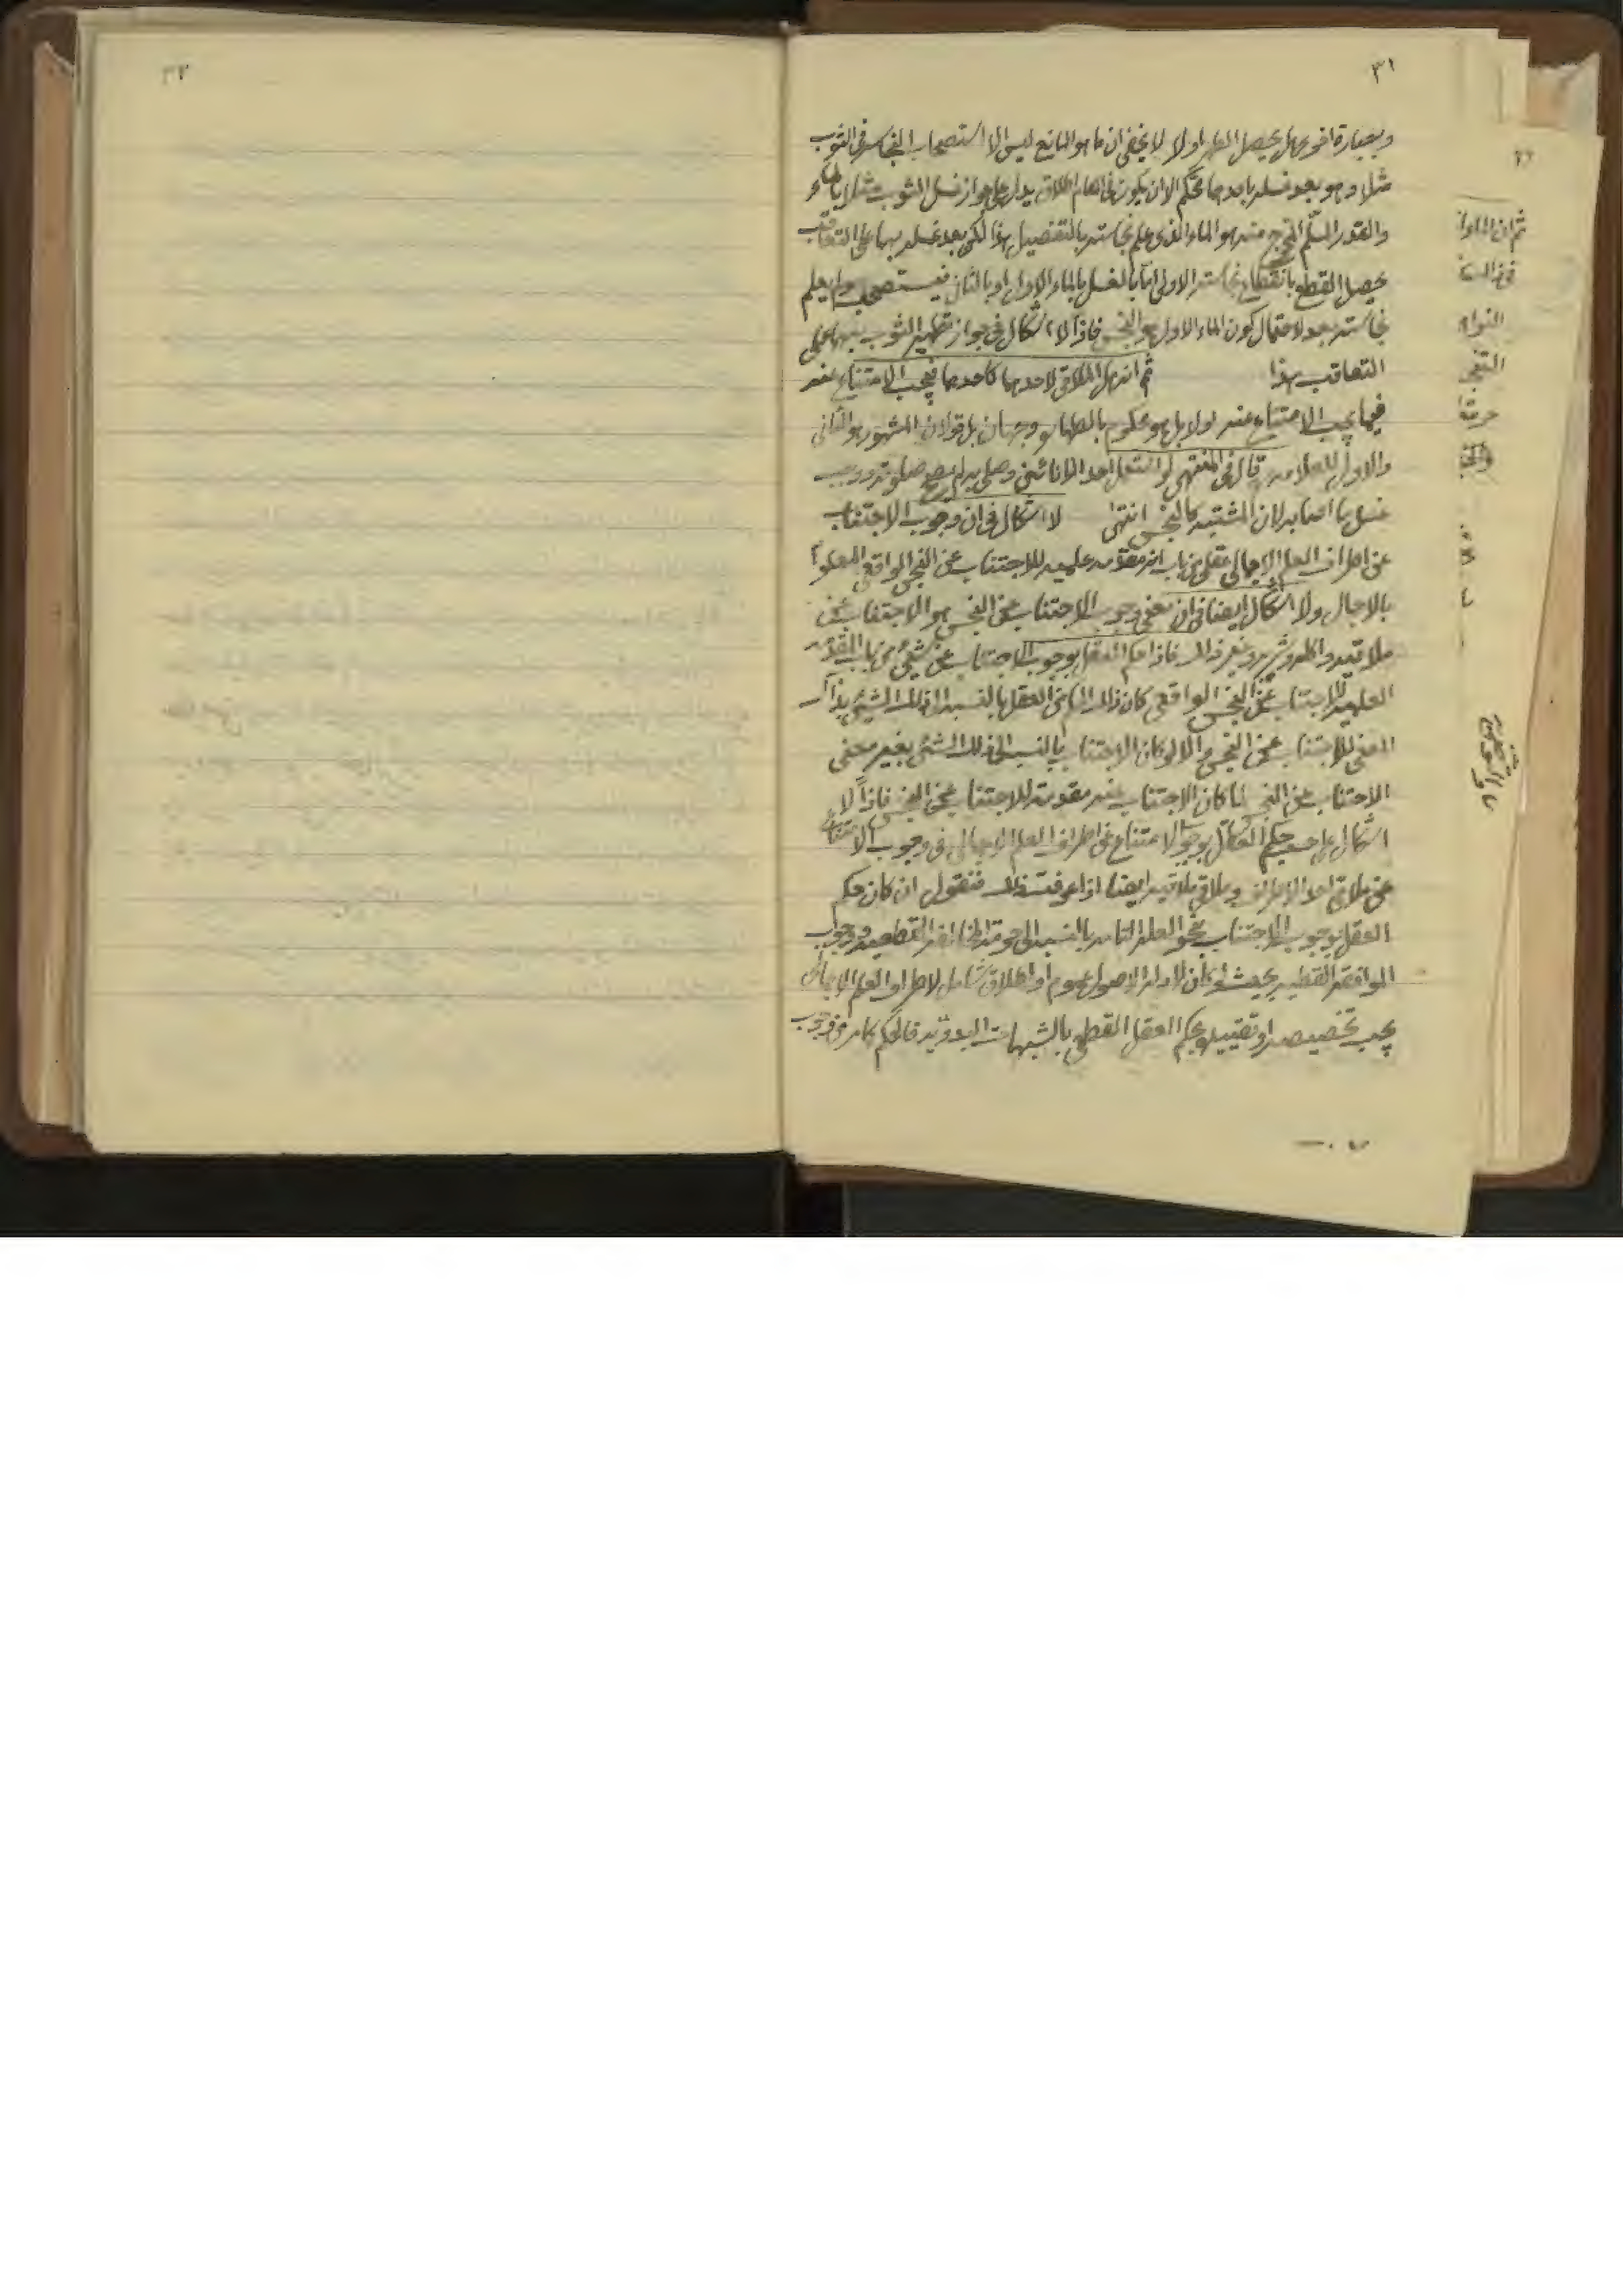 ٣١
وبعبارة اخرى هل يحصل الطهر اولا لا يخفى ان ما هو المانع ليس الا استصحاب النجاسة في الثوب
مثلا وهو بعد غسله باحدهما محكم الا ان يكون في المقام اطلاق يدل على جواز غسل الثوب مثلا بالماء
والقدر المسلّم الخرج منه هو الماء الذي علم نجاسته بالتفصيل هذا لكن بعد غسله بهما على التعاقب
يحصل القطع بانقطاع نجاسته الاولى اما بالغسل بالماء الاول او بالثاني فيستصحب ولم يعلم
نجاسته بعد لاحتمال كون الماء الاول هو النجس فاذاً لا اشكال في جواز تطهير الثوب بهما على
التعاقب هذا ثم انه هل الملاقي لاحدهما كاحدهما فيجب الامتناع عنه
فيما يجب الامتناع عنه اولا بل هو محكوم بالطهارة وجهان بل قولان المشهور هو الثاني
والاول للعلامة قال في المنتهى لو استعمل احد الانائين وصلى به لم يصح صلوته ووجب
غسل ما اصابه لان المشتبه كالنجس انتهى لا اشكال في ان وجوب الاجتناب
عن اطراف العلم الاجمالي عقلي من باب انه مقدمة علمية للاجتناب عن النجس الواقعي المعلوم
بالاجمال ولا اشكال ايضا في ان معنى وجوب الاجتناب عن النجس هو الاجتناب عن
ملاقيه واكله وشربه وغير ذلك فاذا حكم العقل بوجوب الاجتناب عن شيء من باب المقدمة
العلمية للاجتناب عن النجس الواقعي كان ذلك الزاماً من العقل بالنسبة الى ذلك الشيء بهذا
المعنى للاجتناب عن النجس والا لو كان الاجتناب بالنسبة الى ذلك الشيء بغير معنى
الاجتناب عن النجس لما كان الاجتناب عنه مقدمة للاجتناب عن النجس فاذاً لا
اشكال على حسب حكم العقل بوجوب الامتناع عن اطراف العلم الاجمالي في وجوب الامتناع
عن ملاقي احد الاطراف وملاقي ملاقيه ايضا اذا عرفت ذلك فنقول ان كان حكم
العقل بوجوب الاجتناب بنحو العلة التامة بالنسبة الى حرمة المخالفة القطعية ووجوب
الموافقة القطعية بحيث لو كان لادلة الاصول عموم او اطلاق شامل لاطراف العلم الاجمالي
يجب تخصيصه او تقييده بحكم العقل القطعي بالشبهات البدوية فالحكم كما مر في وجوب
ثم ان الماء